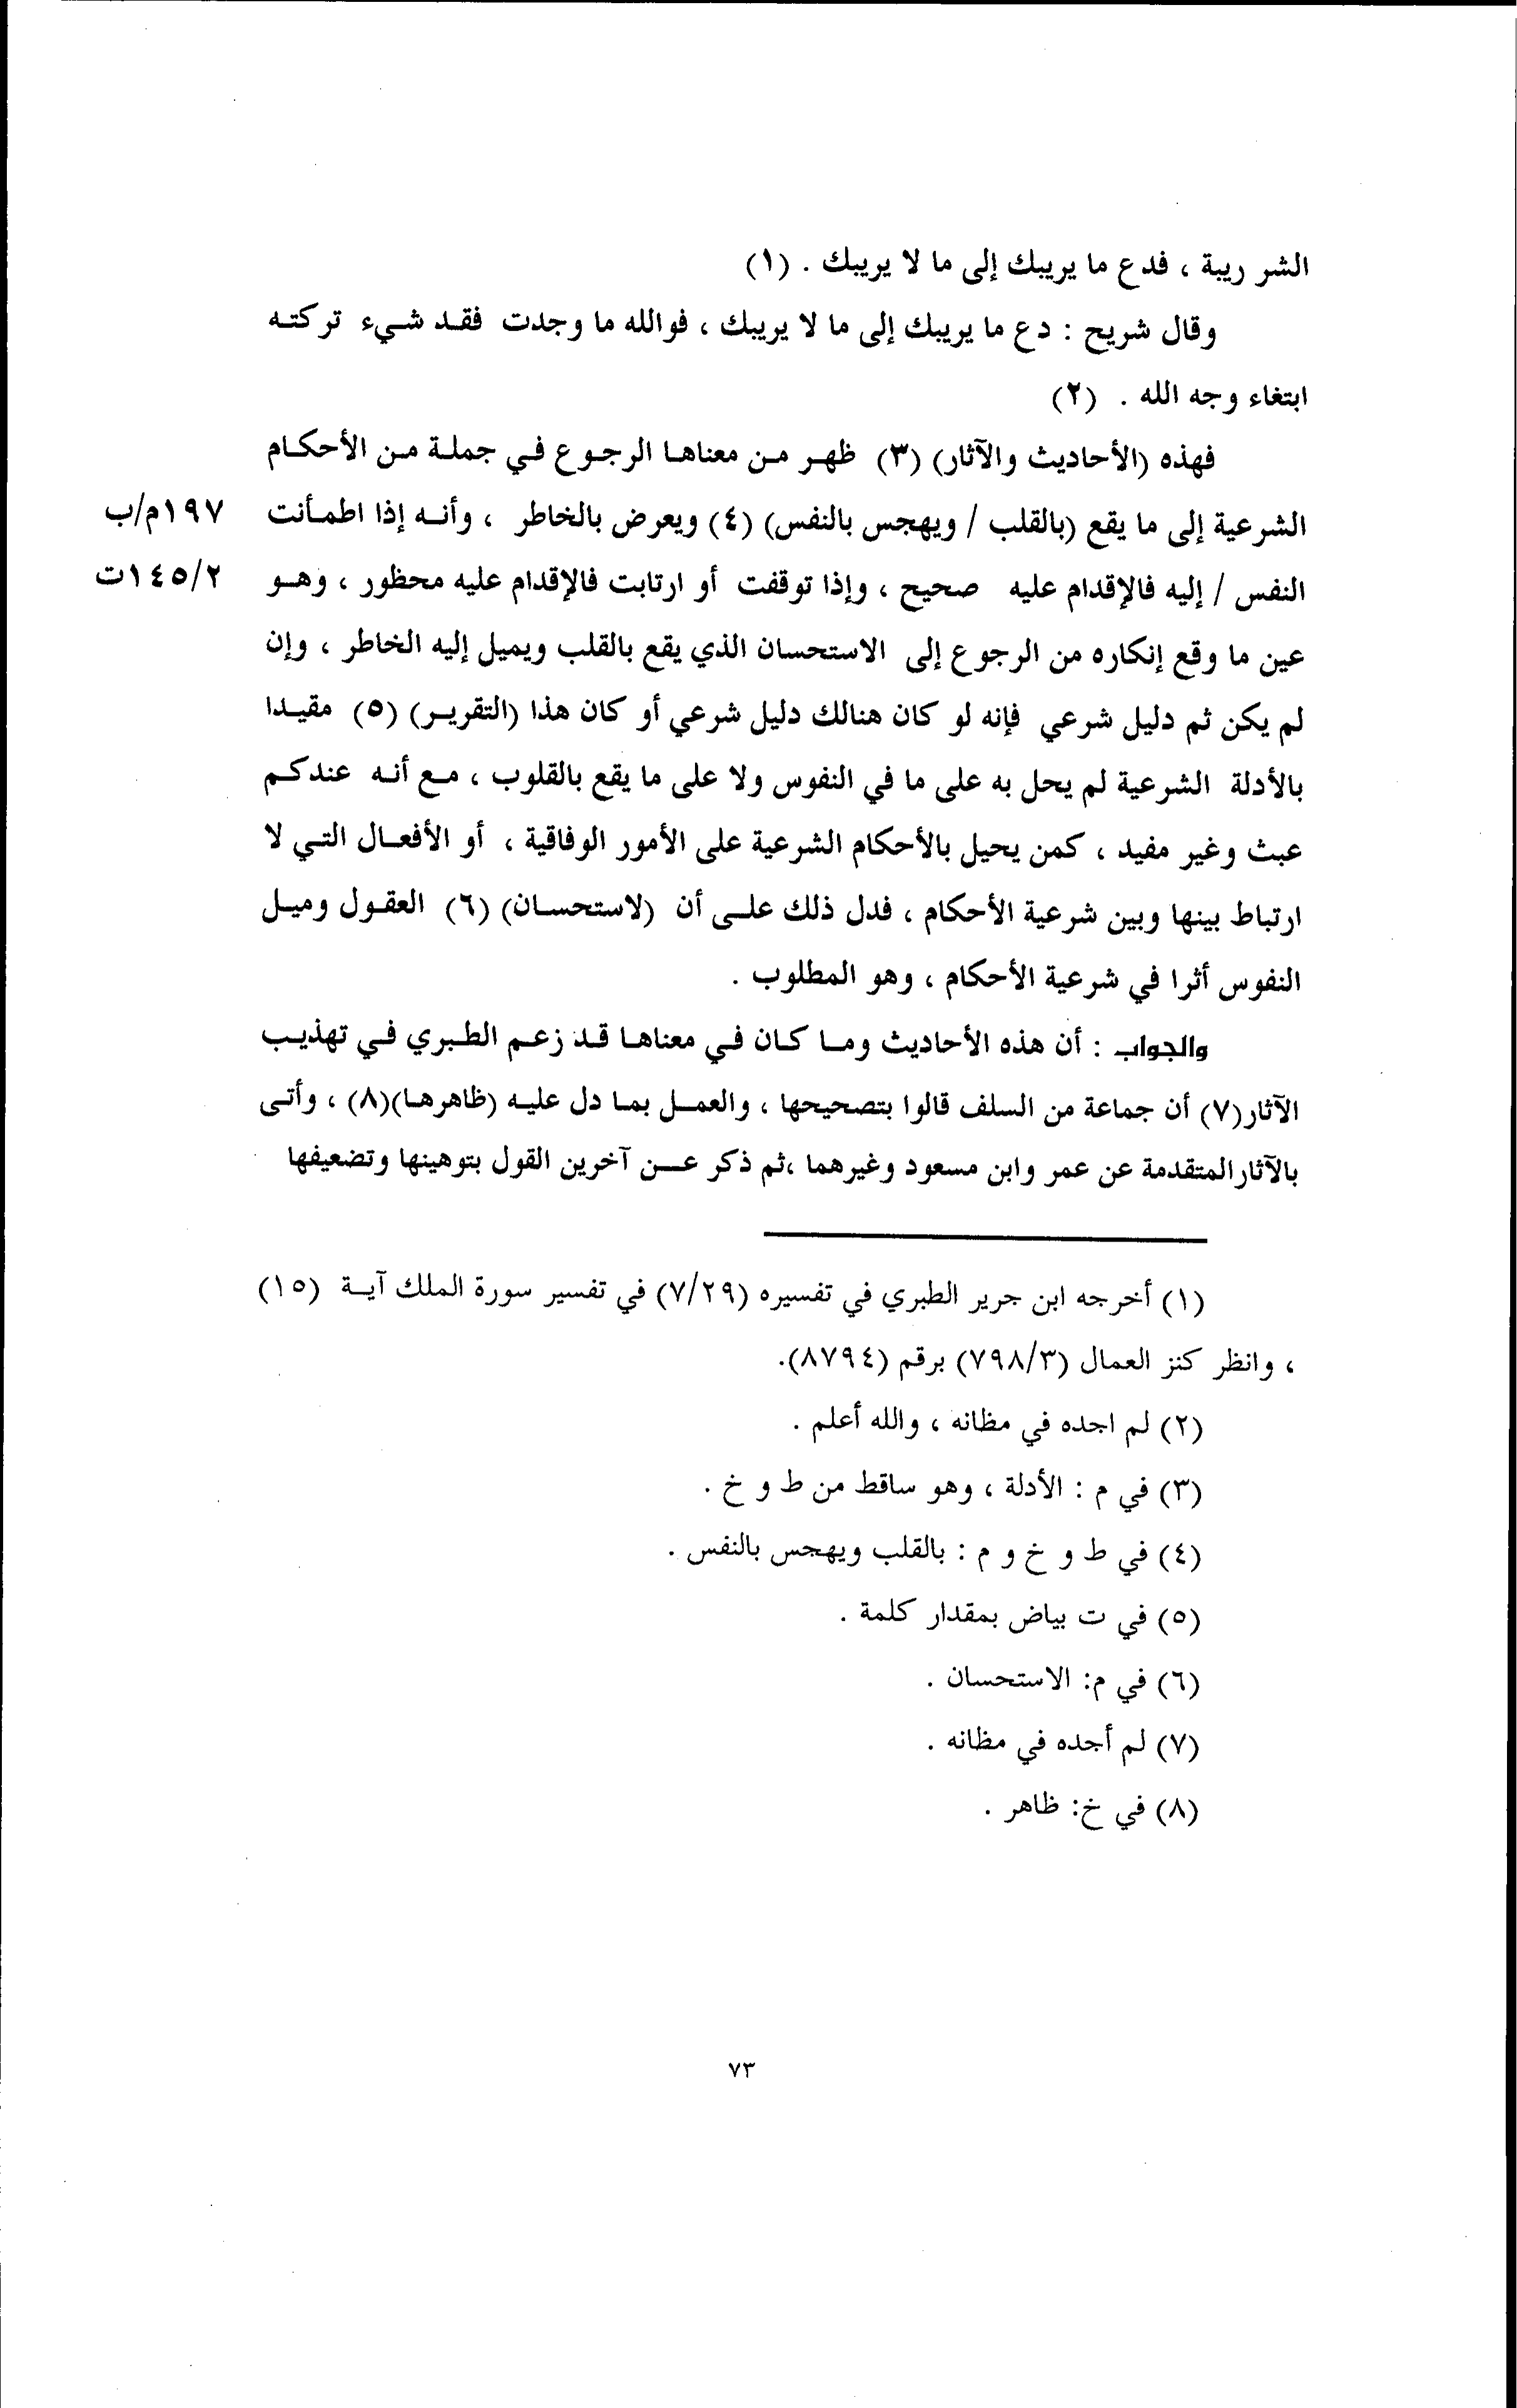 الشر ريبة ، فدع ما يريبك إلى ما لا يريبك . (١)
وقال شريح : دع ما يريبك إلى ما لا يريبك ، فوالله ما وجدت فقد شيء تركته
ابتغاء وجه الله . (٢)
فهذه (الأحاديث والآثار) (٣) ظهر من معناها الرجوع في جملة من الأحكام
الشرعية إلى ما يقع (بالقلب / ويهجس بالنفس) (٤) ويعرض بالخاطر ، وأنه إذا اطمأنت ١٩٧م/ب
النفس / إليه فالإقدام عليه صحيح ، وإذا توقفت أو ارتابت فالإقدام عليه محظور ، وهو ١٤٥/٢ت
عين ما وقع إنكاره من الرجوع إلى الاستحسان الذي يقع بالقلب ويميل إليه الخاطر ، وإن
لم يكن ثم دليل شرعي فإنه لو كان هنالك دليل شرعي أو كان هذا (التقرير) (٥) مقيدا
بالأدلة الشرعية لم يحل به على ما في النفوس ولا على ما يقع بالقلوب ، مع أنه عندكم
عبث وغير مفيد ، كمن يحيل بالأحكام الشرعية على الأمور الوفاقية ، أو الأفعال التي لا
ارتباط بينها وبين شرعية الأحكام ، فدل ذلك على أن (لاستحسان) (٦) العقول وميل
النفوس أثرا في شرعية الأحكام ، وهو المطلوب .
والجواب : أن هذه الأحاديث وما كان في معناها قد زعم الطبري في تهذيب
الآثار(٧) أن جماعة من السلف قالوا بتصحيحها ، والعمل بما دل عليه (ظاهرها)(٨) ، وأتى
بالآثار المتقدمة عن عمر وابن مسعود وغيرهما ،ثم ذكر عن آخرين القول بتوهينها وتضعيفها
(١) أخرجه ابن جرير الطبري في تفسيره (٧/٢٩) في تفسير سورة الملك آية (١٥)
، وانظر كنز العمال (٧٩٨/٣) برقم (٨٧٩٤).
(٢) لم اجده في مظانه ، والله أعلم .
(٣) في م : الأدلة ، وهو ساقط من ط و خ .
(٤) في ط و خ و م : بالقلب ويهجس بالنفس .
(٥) في ت بياض بمقدار كلمة .
(٦) في م: الاستحسان .
(٧) لم أجده في مظانه .
(٨) في خ: ظاهر .
٧٣